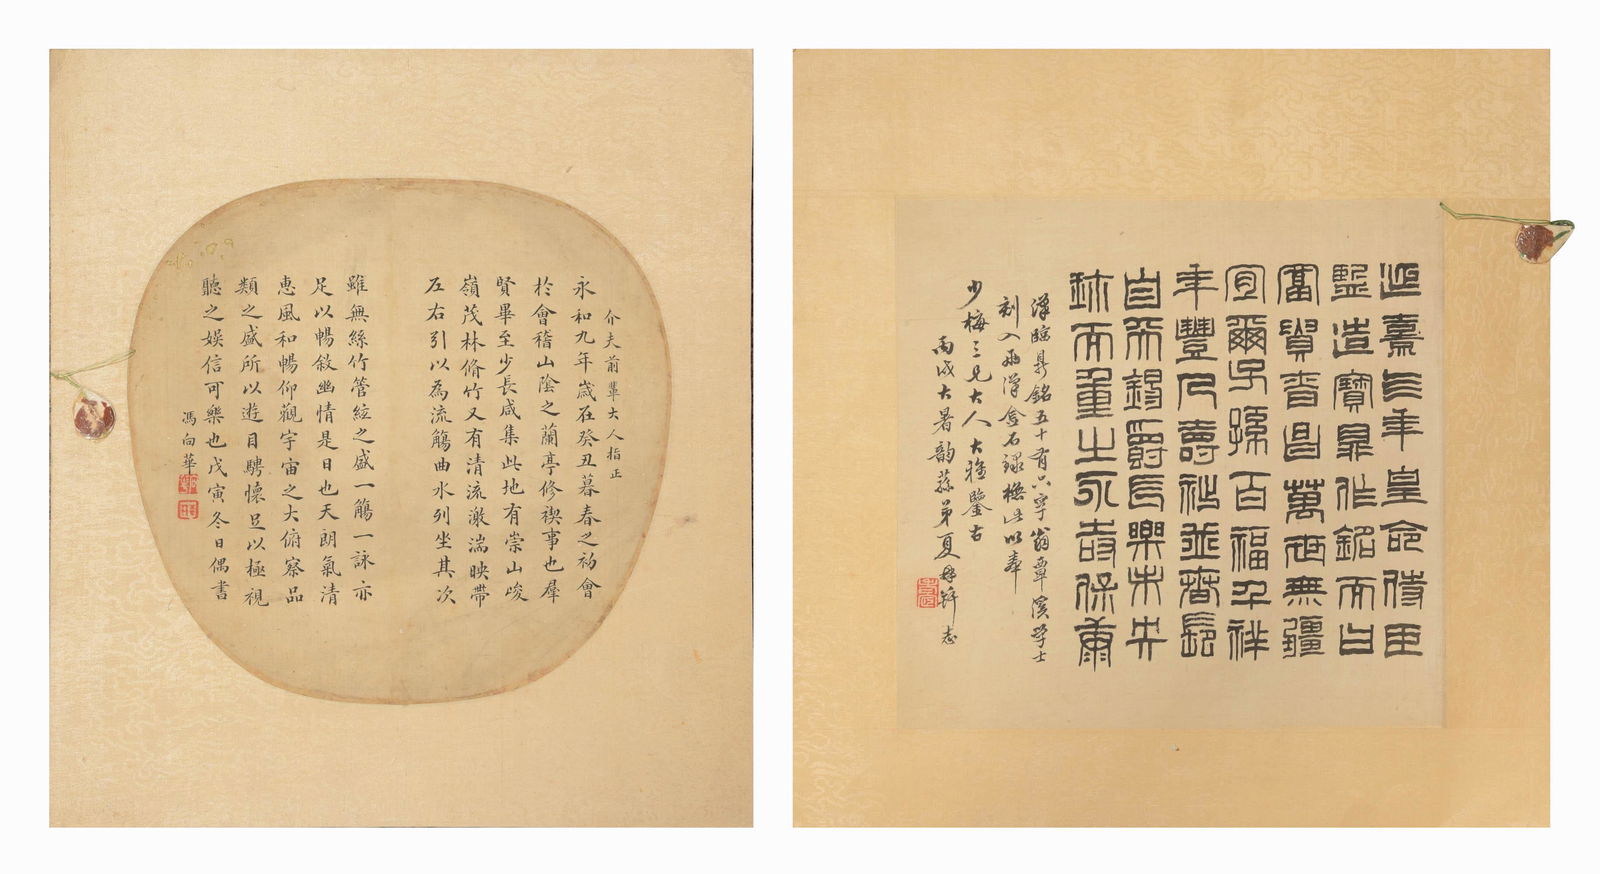 介夫前輩大人指正
永和九年歲在癸丑暮春之初會
於會稽山陰之蘭亭修禊事也羣
賢畢至少長咸集此地有崇山峻
嶺茂林脩竹又有清流激湍映帶
左右引以為流觴曲水列坐其次
雖無絲竹管絃之盛一觴一詠亦
足以暢敘幽情是日也天朗氣清
惠風和暢仰觀宇宙之大俯察品
類之盛所以遊目騁懷足以極視
聽之娛信可樂也戊寅冬日偶書
馮向華
延熹三年皇命侍臣
監造寶鼎作銘而曰
富貴昌萬世無疆
宜爾子孫百福平祥
年豐人壽祉並長
自天錫爵長樂未央
銖兩重之永壽保康
漢鼎銘五十有六字翁覃溪學士
刻入兩漢金石錄橅此以奉
少梅三兄大人大雅鑒古
丙戌大暑韵蓀弟夏志